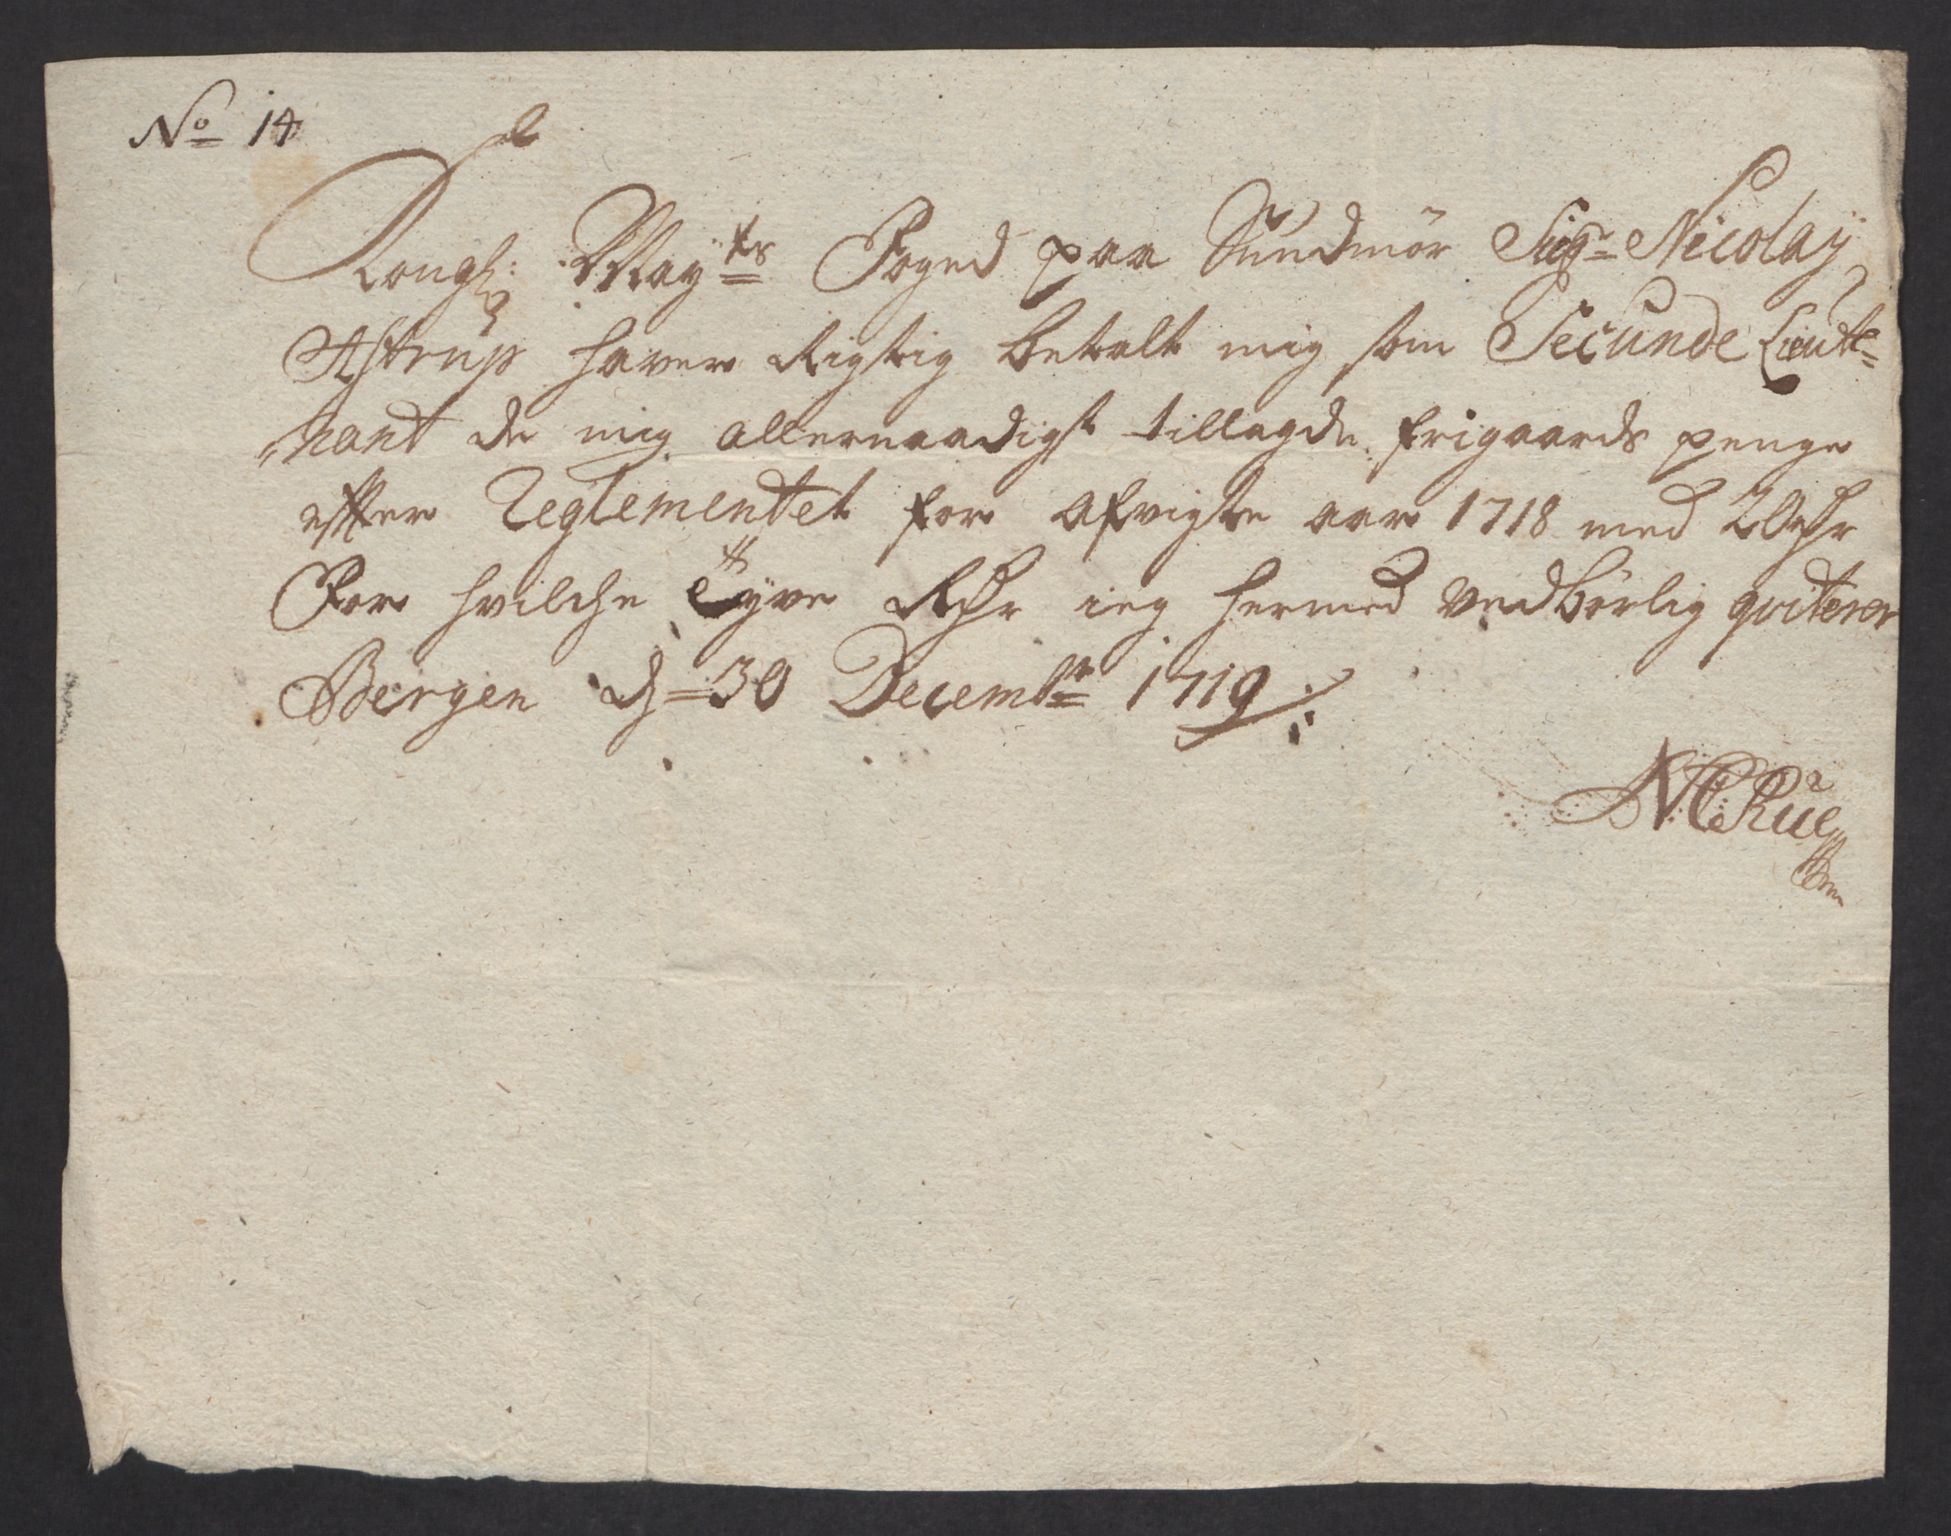 No 14
Kongl: Mayts Foged paa Sundmör Sigr Nicolaÿ
Astrup haver Rigtig betalt mig som Secunde Lieute=
nant de mig allernaadigst tillagde frigaards penge
efter Reglementet for afvigte aar 1718 med 20 rdr
For hvilche Tyve Rdr ieg hermed vedbörlig qviterer
Bergen d= 30 Decembr 1719